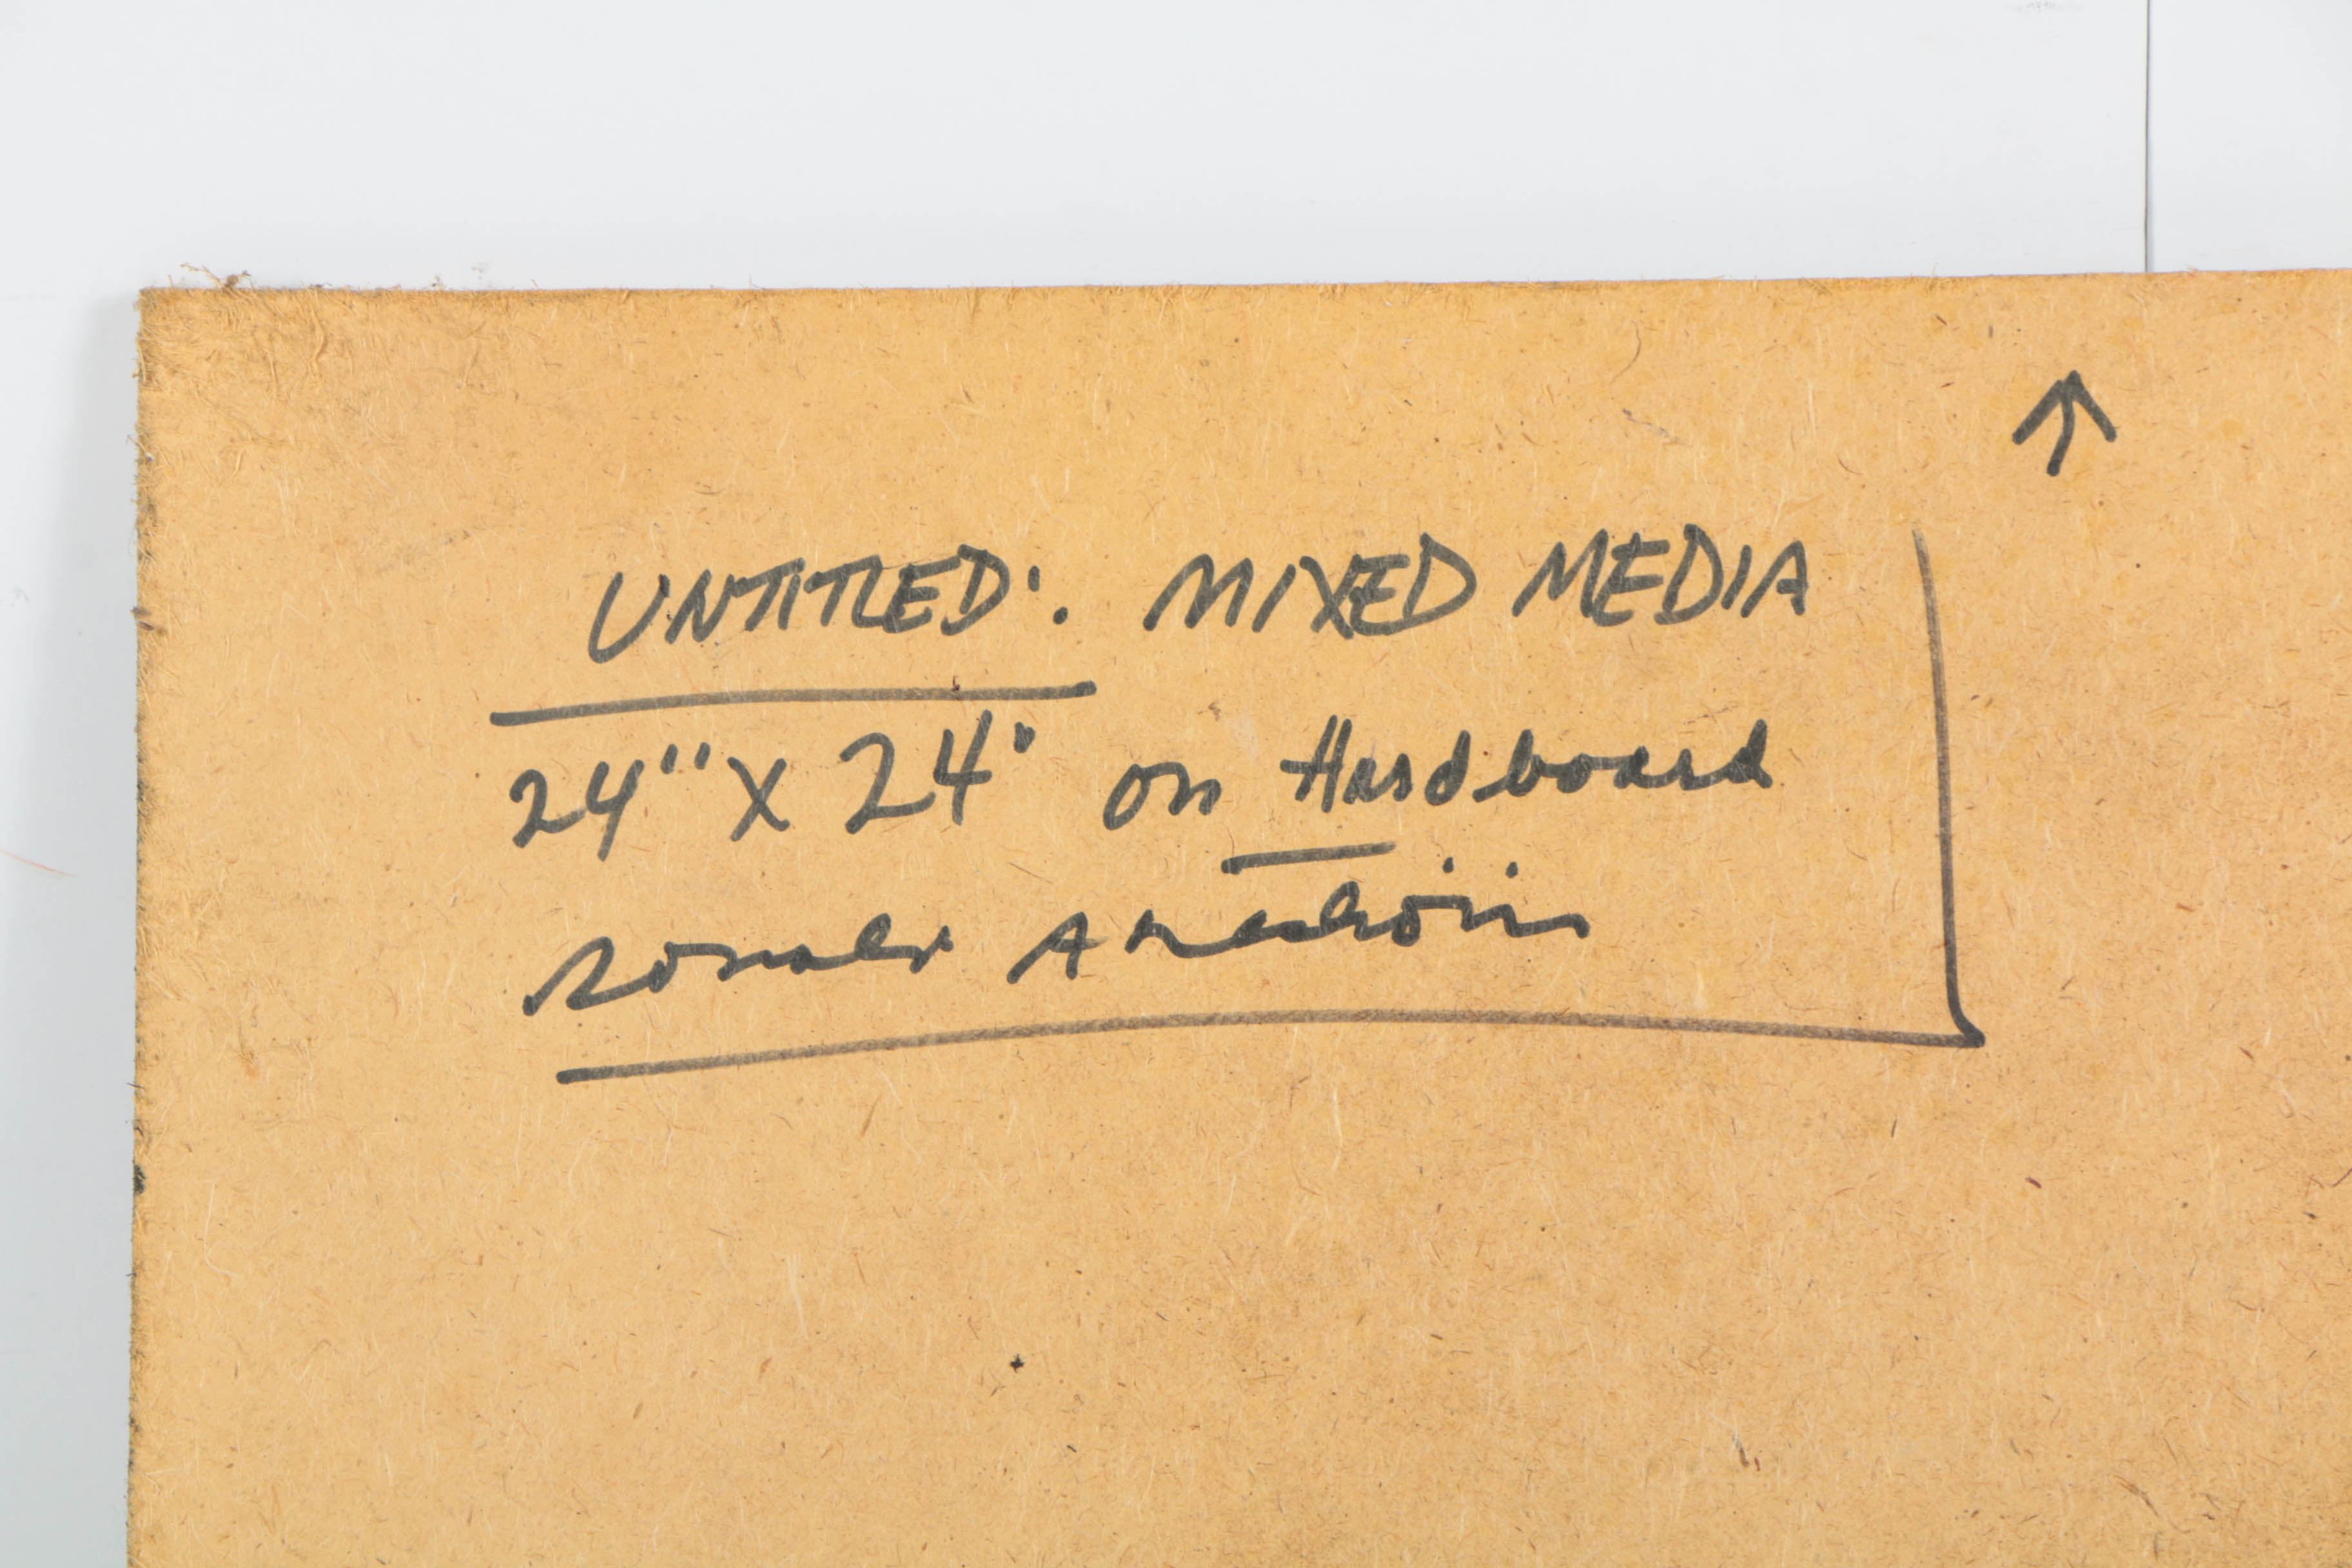 ↑
UNTITLED: MIXED MEDIA
24" X 24" on Hardboard
Ronald Ahlström